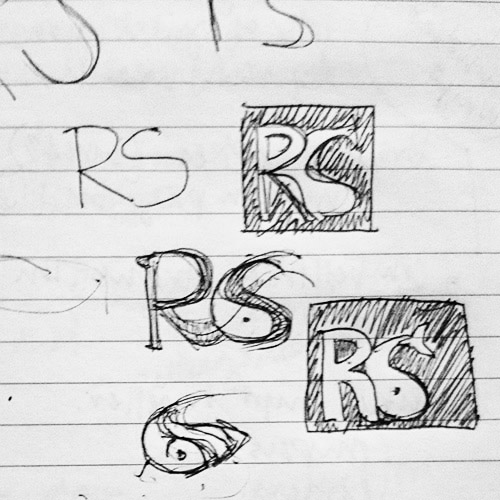 RS RS
RS
RS